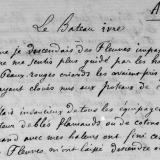 A
Le Bateau ivre
je descendais des Fleuves impass
ne me sentis plus guidé par les ha
Peaux-rouges criards les avaient pris
ayant cloués nus aux poteaux de c
tais insoucieux de tous les équipages
teur de blés flamands ou de coton
and avec mes haleurs ont fini ce
Fleuves m'ont laissé descendre o